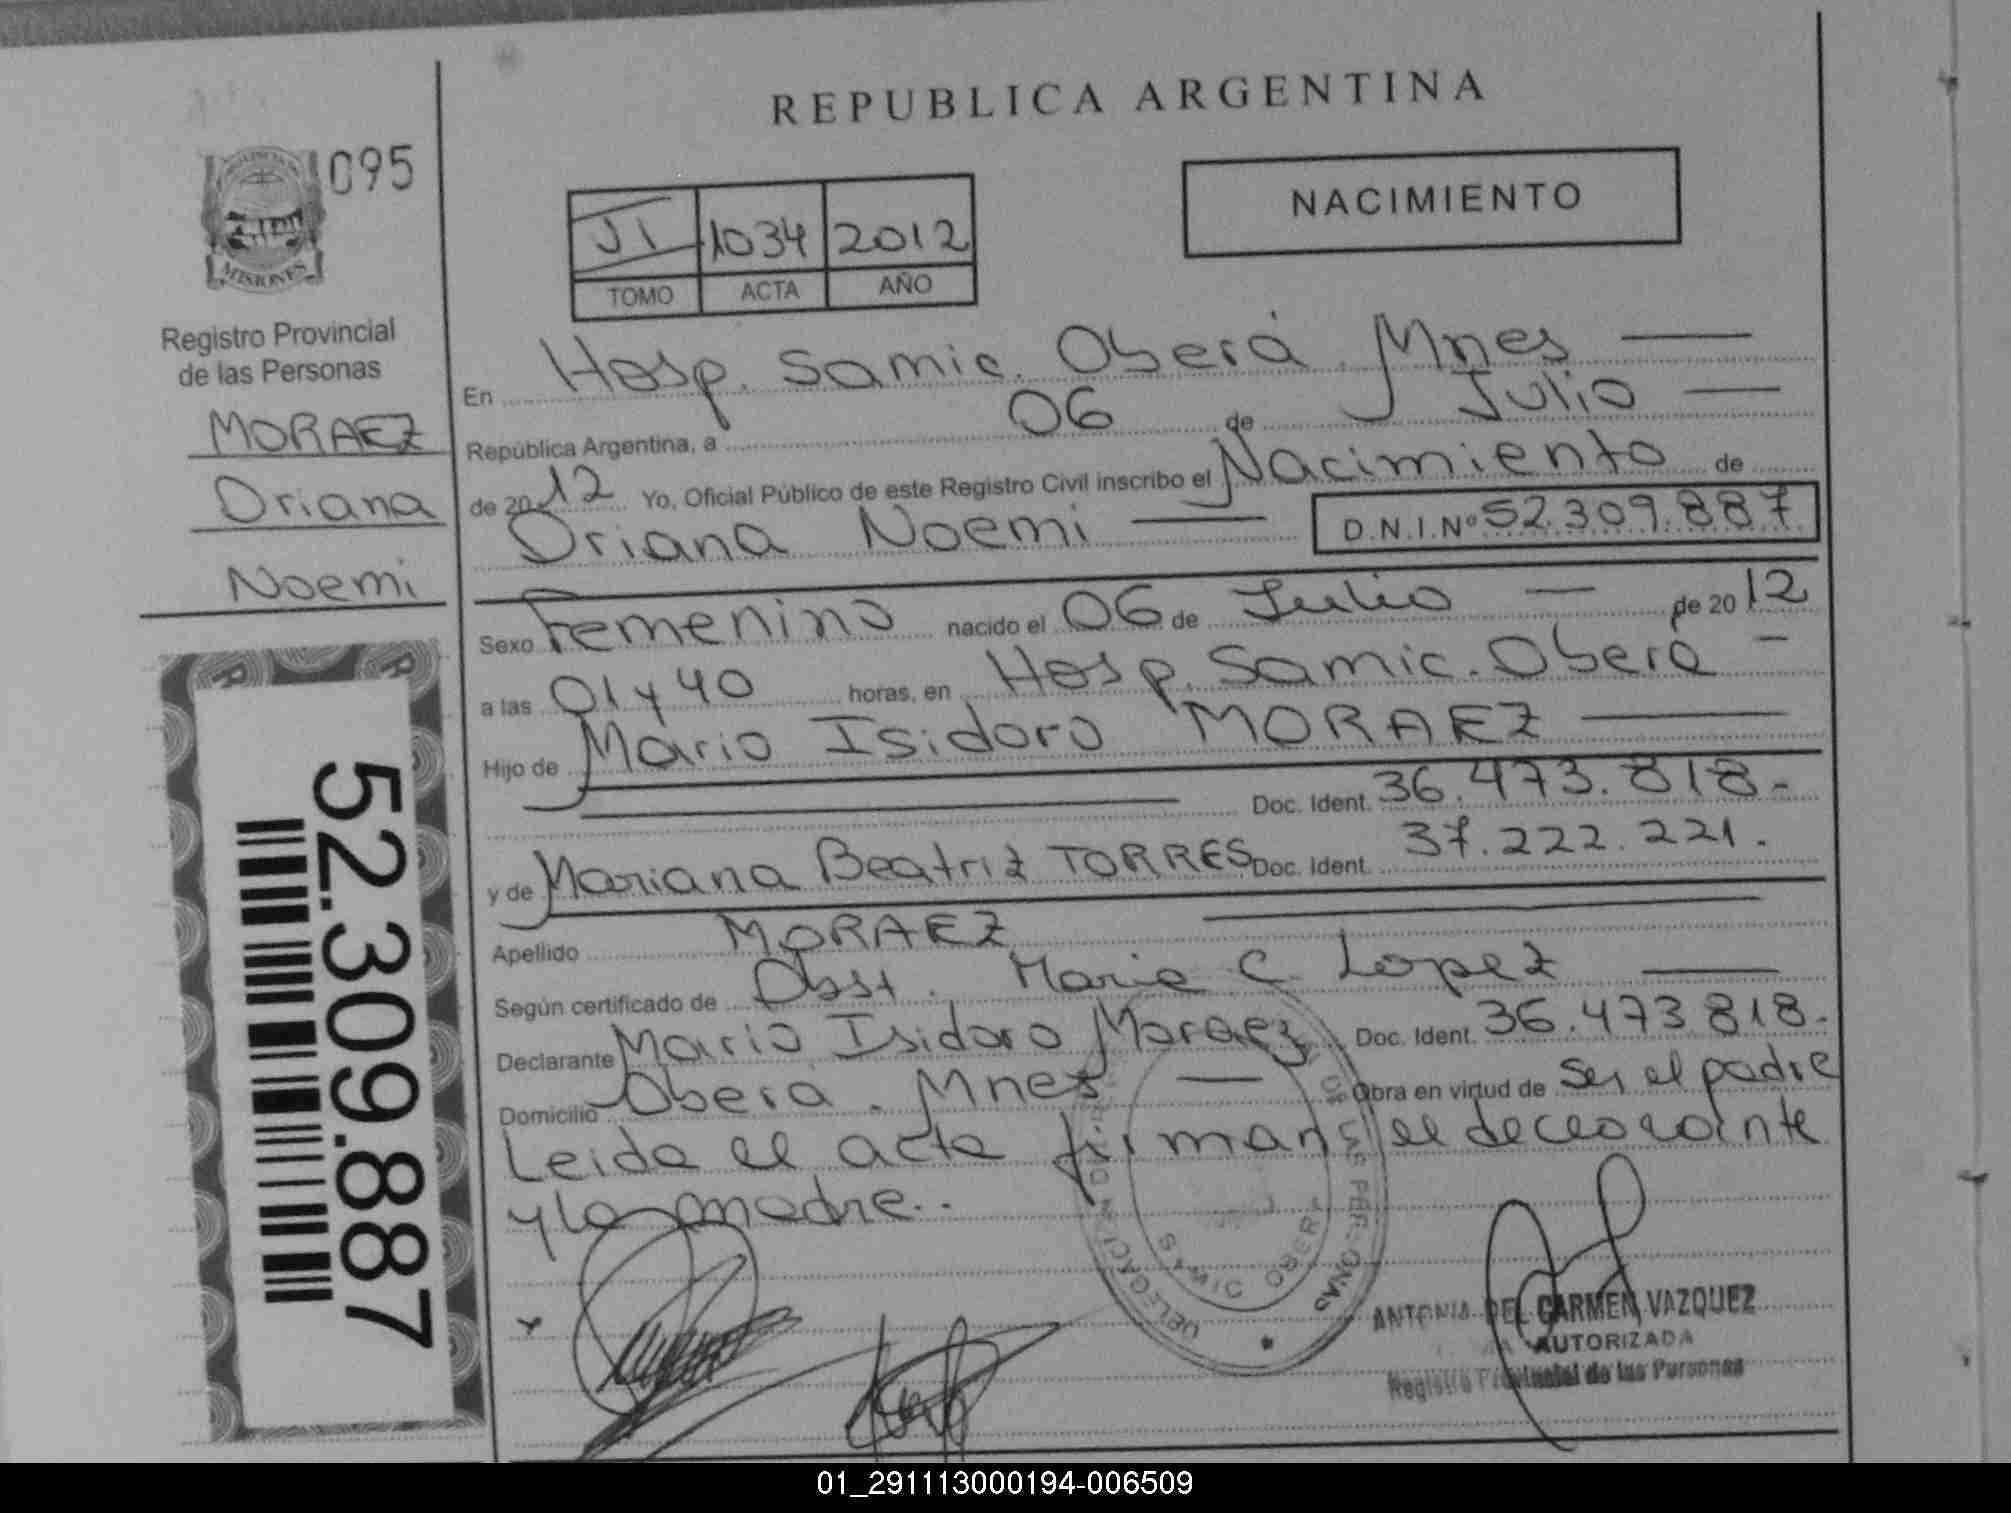 REPUBLICA ARGENTINA
095
MISIONES
Registro Provincial
de las Personas
MORAEZ
Oriana
Noemi
52.309.887
NACIMIENTO
1034 2012
TOMO ACTA AÑO
En Hosp. Samic. Oberá. Mnes
República Argentina, a 06 de Julio
de 2012 Yo, Oficial Público de este Registro Civil inscribo el Nacimiento de
Oriana Noemi D.N.I.Nº 52.309.887
Sexo Femenino nacido el 06 de Julio de 2012
a las 01 y 40 horas, en Hosp. Samic. Oberá
Hijo de Mario Isidoro MORAEZ
Doc. Ident. 36.473.818.-
y de Mariana Beatriz TORRES Doc. Ident. 37.222.221.
Apellido MORAEZ
Según certificado de Obst. Maria C. Lopez
Declarante Mario Isidoro Moraez Doc. Ident. 36.473.818.
Domicilio Oberá. Mnes Obra en virtud de ser el padre
Leida el acta firman el declarante
y la madre..
DELEGACI
DE LAS PERSONAS
SAMIC OBERA
ANTONIA DEL CARMEN VAZQUEZ
AUTORIZADA
Registro Provincial de las Personas
01_291113000194-006509